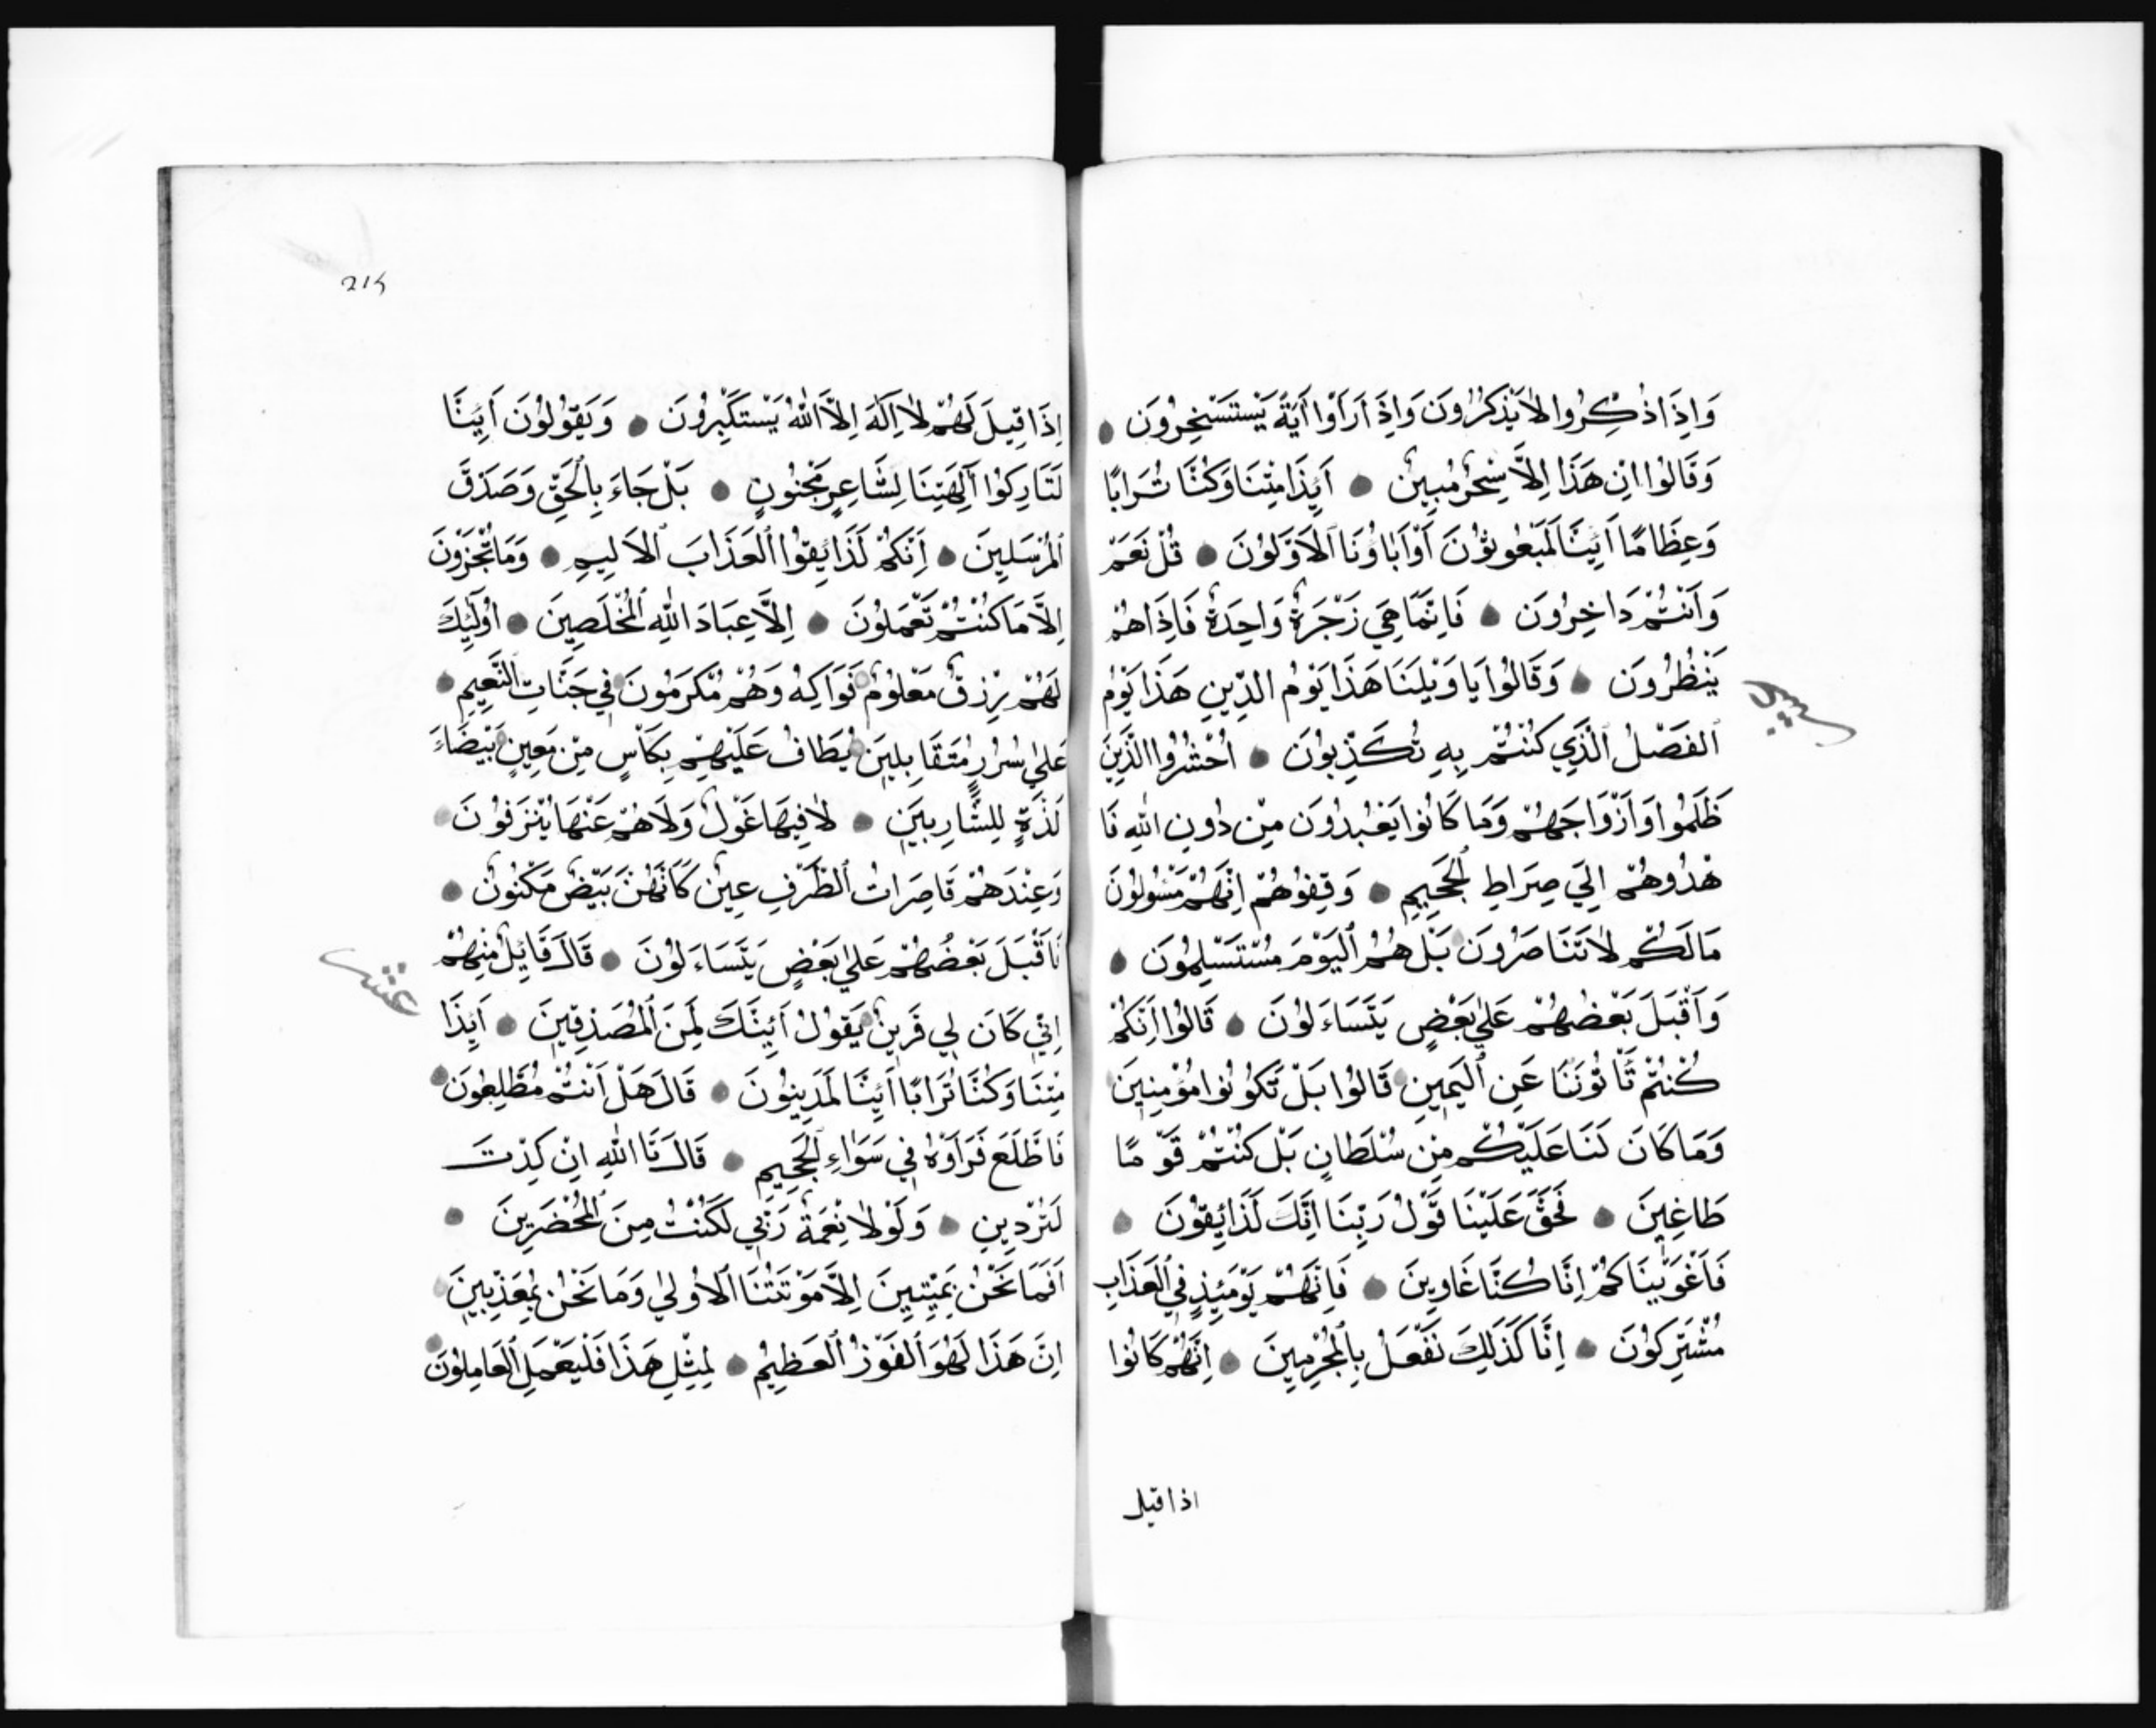 وَاِذَا ذُكِّرُوا لَا يَذْكُرُونَ وَاِذَا رَاَوْا آيَةً يَسْتَسْخِرُونَ
وَقَالُوا اِنْ هَذَا اِلَّا سِحْرٌ مُبِينٌ اَئِذَا مِتْنَا وَكُنَّا تُرَابًا
وَعِظَامًا اَئِنَّا لَمَبْعُوثُونَ اَوَآبَاؤُنَا الْاَوَّلُونَ قُلْ نَعَمْ
وَاَنْتُمْ دَاخِرُونَ فَاِنَّمَا هِيَ زَجْرَةٌ وَاحِدَةٌ فَاِذَا هُمْ
يَنْظُرُونَ وَقَالُوا يَا وَيْلَنَا هَذَا يَوْمُ الدِّينِ هَذَا يَوْمُ
الْفَصْلِ الَّذِي كُنْتُمْ بِهِ تُكَذِّبُونَ اُحْشُرُوا الَّذِينَ
ظَلَمُوا وَاَزْوَاجَهُمْ وَمَا كَانُوا يَعْبُدُونَ مِنْ دُونِ اللهِ فَا
هْدُوهُمْ اِلَى صِرَاطِ الْجَحِيمِ وَقِفُوهُمْ اِنَّهُمْ مَسْئُولُونَ
مَا لَكُمْ لَا تَنَاصَرُونَ بَلْ هُمُ الْيَوْمَ مُسْتَسْلِمُونَ
وَاَقْبَلَ بَعْضُهُمْ عَلَى بَعْضٍ يَتَسَاءَلُونَ قَالُوا اِنَّكُمْ
كُنْتُمْ تَأْتُونَنَا عَنِ الْيَمِينِ قَالُوا بَلْ تَكُونُوا مُؤْمِنِينَ
وَمَا كَانَ لَنَا عَلَيْكُمْ مِنْ سُلْطَانٍ بَلْ كُنْتُمْ قَوْمًا
طَاغِينَ فَحَقَّ عَلَيْنَا قَوْلُ رَبِّنَا اِنَّكَ لَذَائِقُونَ
فَاَغْوَيْنَاكُمْ اِنَّا كُنَّا غَاوِينَ فَاِنَّهُمْ يَوْمَئِذٍ فِي الْعَذَابِ
مُشْتَرِكُونَ اِنَّا كَذَلِكَ نَفْعَلُ بِالْمُجْرِمِينَ اِنَّهُمْ كَانُوا
اذا قيل
اِذَا قِيلَ لَهُمْ لَا اِلَهَ اِلَّا اللهُ يَسْتَكْبِرُونَ وَيَقُولُونَ اَئِنَّا
لَتَارِكُوا آلِهَتِنَا لِشَاعِرٍ مَجْنُونٍ بَلْ جَاءَ بِالْحَقِّ وَصَدَّقَ
الْمُرْسَلِينَ اِنَّكُمْ لَذَائِقُوا الْعَذَابَ الْاَلِيمِ وَمَا تُجْزَوْنَ
اِلَّا مَا كُنْتُمْ تَعْمَلُونَ اِلَّا عِبَادَ اللهِ الْمُخْلَصِينَ اُولَئِكَ
لَهُمْ رِزْقٌ مَعْلُومٌ فَوَاكِهُ وَهُمْ مُكْرَمُونَ فِي جَنَّاتِ النَّعِيمِ
عَلَى سُرُرٍ مُتَقَابِلِينَ يُطَافُ عَلَيْهِمْ بِكَأْسٍ مِنْ مَعِينٍ بَيْضَاءَ
لَذَّةٍ لِلشَّارِبِينَ لَا فِيهَا غَوْلٌ وَلَا هُمْ عَنْهَا يُنْزَفُونَ
وَعِنْدَهُمْ قَاصِرَاتُ الطَّرْفِ عِينٌ كَاَنَّهُنَّ بَيْضٌ مَكْنُونٌ
فَاَقْبَلَ بَعْضُهُمْ عَلَى بَعْضٍ يَتَسَاءَلُونَ قَالَ قَائِلٌ مِنْهُمْ
عشر
اِنِّي كَانَ لِي قَرِينٌ يَقُولُ اَئِنَّكَ لَمِنَ الْمُصَدِّقِينَ اَئِذَا
مِتْنَا وَكُنَّا تُرَابًا اَئِنَّا لَمَدِينُونَ قَالَ هَلْ اَنْتُمْ مُطَّلِعُونَ
فَاطَّلَعَ فَرَاَوْهُ فِي سَوَاءِ الْجَحِيمِ قَالَ تَا اللهِ اِنْ كِدْتَ
لَتُرْدِينِ وَلَوْلَا نِعْمَةُ رَبِّي لَكُنْتُ مِنَ الْمُحْضَرِينَ
اَفَمَا نَحْنُ بِمَيِّتِينَ اِلَّا مَوْتَتَنَا الْاُولَى وَمَا نَحْنُ بِمُعَذَّبِينَ
اِنَّ هَذَا لَهُوَ الْفَوْزُ الْعَظِيمُ لِمِثْلِ هَذَا فَلْيَعْمَلِ الْعَامِلُونَ